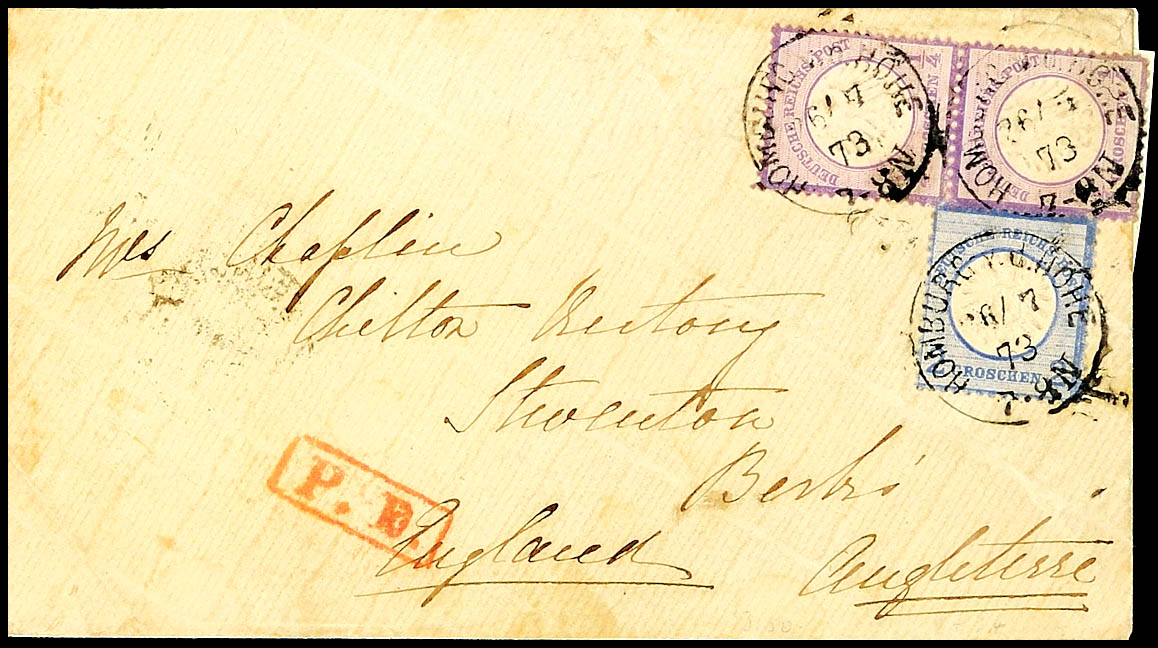 DEUTSCHE REICHS-POST
1/4
GROSCHEN
HOMBURG V.D. HÖHE
26/7
73
7-8N
DEUTSCHE REICHS-POST
GROSCHEN
HOMBURG V.D. HÖHE
26/7
73
7-8N
DEUTSCHE REICHS-POST
GROSCHEN
HOMBURG V.D. HÖHE
26/7
73
7-8N
Mrs Chaplin
Chilton Rectory
Steventon
Berks
England
Angleterre
P. D.